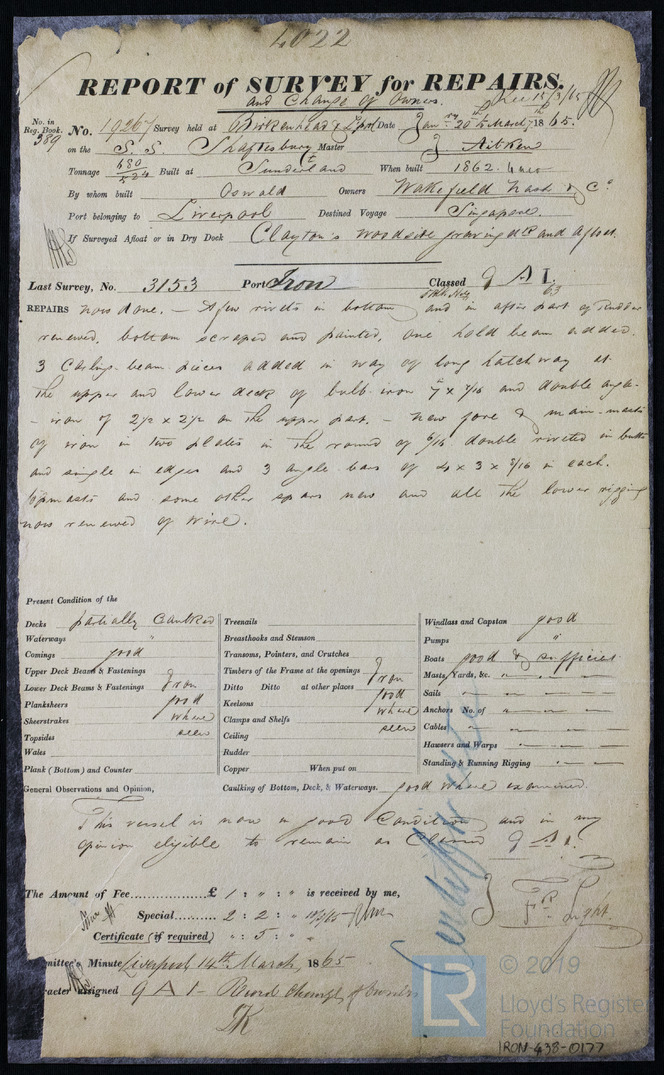 4022
REPORT of SURVEY for REPAIRS.
and Change of Owners.
No. in Reg. Book. 389
No. 19267 Survey held at Birkenhead & Lpool Date Jany 20th March 7th 1865.
on the S.S. Shaftesbury Master J Aitken
Tonnage 680 / 524 Built at Sunderland When built 1862
By whom built Oswald Owners Wakefield Nash & Co
Port belonging to Liverpool Destined Voyage Singapore.
If Surveyed Afloat or in Dry Dock Clayton's Woodside graving dk and afloat
Last Survey, No. 3153 Port Iron Classed 9 A 1. 63
REPAIRS now done. — A few rivets in bottom and in after part of Rudder
renewed, bottom scraped and painted, one hold beam added.
3 Carling beam pieces added in way of long hatchway at
the upper and lower decks of bulb iron 7 x 7/16 and double angle
- iron of 2½ x 2½ on the upper part. — new fore & main-masts
of iron in two plates in the round of 6/16 double riveted in butts
and single in edges and 3 angle bars of 4 x 3 x 8/16 in each.
topmasts and some other spars new and all the lower rigging
now renewed of wire.
Present Condition of the
Decks partially Caulked
Waterways "
Comings good
Upper Deck Beams & Fastenings
Lower Deck Beams & Fastenings Iron
Planksheers good
Sheerstrakes where
Topsides seen
Wales
Plank (Bottom) and Counter
Treenails
Breasthooks and Stemson
Transoms, Pointers, and Crutches
Timbers of the Frame at the openings Iron
Ditto Ditto at other places
Keelsons good
Clamps and Shelfs where
Ceiling seen
Rudder
Copper When put on
Windlass and Capstan good
Pumps "
Boats good & sufficient
Masts, Yards, &c. "
Sails "
Anchors No. of "
Cables "
Hawsers and Warps
Standing & Running Rigging
General Observations and Opinion, Caulking of Bottom, Deck, & Waterways. good where examined.
This vessel is now in good Condition and in my
opinion eligible to remain as Classed 9 A 1.
The Amount of Fee £ 1 : " : " is received by me,
Special 2 : 2 : "
Certificate (if required) " : 5 : "
Light
mmittee's Minute Liverpool 14th March, 1865
racter assigned 9 A 1 - Record Change of Owners
LR
© 2019
Lloyd's Register
Foundation
IRON-438-0177